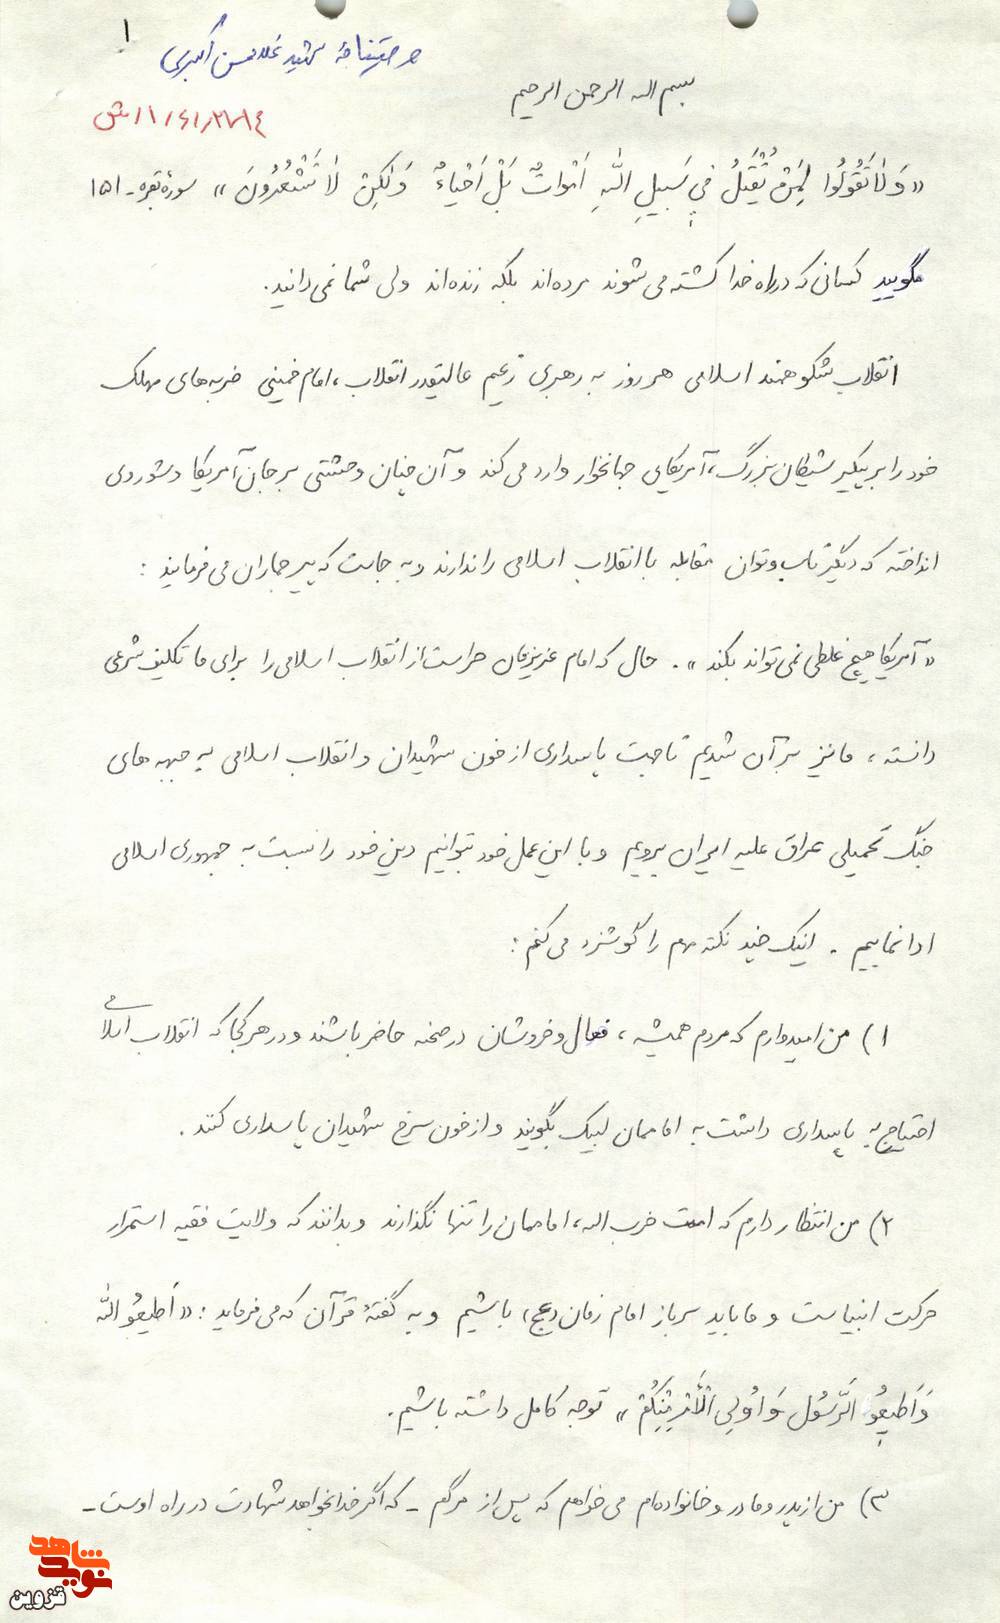 ۱
وصیتنامهٔ شهید غلامحسن اکبری
بسم اله الرحمن الرحیم
« وَلاٰتَقُولُوا لِمَنْ یُقْتَلُ فی سَبیلِ اللّٰهِ اَمْواتٌ بَلْ اَحْیاءٌ وَلٰکِنْ لاٰ تَشْعُرُونَ » سورهٔ بقره - ۱۵۱
مگویید کسانی که در راه خدا کشته می شوند مرده اند بلکه زنده اند ولی شما نمی دانید.
انقلاب شکوهمند اسلامی هر روز به رهبری زعیم عالیقدر انقلاب ، امام خمینی ضربه های مهلک
خود را بر پیکر شیطان بزرگ ، آمریکای جهانخوار وارد می کند و آن چنان وحشتی بر جان آمریکا و شوروی
انداخته که دیگر تاب و توان مقابله با انقلاب اسلامی را ندارند و به جاست که پیر جماران می فرمایند :
« آمریکا هیچ غلطی نمی تواند بکند » . حال که امام عزیزمان حراست از انقلاب اسلامی را برای ما تکلیف شرعی
دانسته ، ما نیز بر آن شدیم تا جهت پاسداری از خون شهیدان و انقلاب اسلامی به جبهه های
جنگ تحمیلی عراق علیه ایران برویم و با این عمل خود بتوانیم دین خود را نسبت به جمهوری اسلامی
ادا نماییم . اینک چند نکته مهم را گوشزد می کنم :
۱) من امیدوارم که مردم همیشه ، فعال و خروشان در صحنه حاضر باشند و در هر کجا که انقلاب اسلامی
احتیاج به پاسداری داشت به امامان لبیک بگویند و از خون سرخ شهیدان پاسداری کنند .
۲) من انتظار دارم که امت حزب اله ، امامان را تنها نگذارند و بدانند که ولایت فقیه استمرار
حرکت انبیاست و ما باید سرباز امام زمان (عج) باشیم و به گفتهٔ قرآن که می فرماید : « اَطیعُو اللّٰه
وَ اَطیعُو الرَّسُول وَ اُولِی الْاَمْرِ مِنْکُمْ » توجه کامل داشته باشیم .
۳) من از پدر و مادر و خانواده ام می خواهم که پس از مرگم - که اگر خدا بخواهد شهادت در راه اوست -
نوید شاهد
قزوین